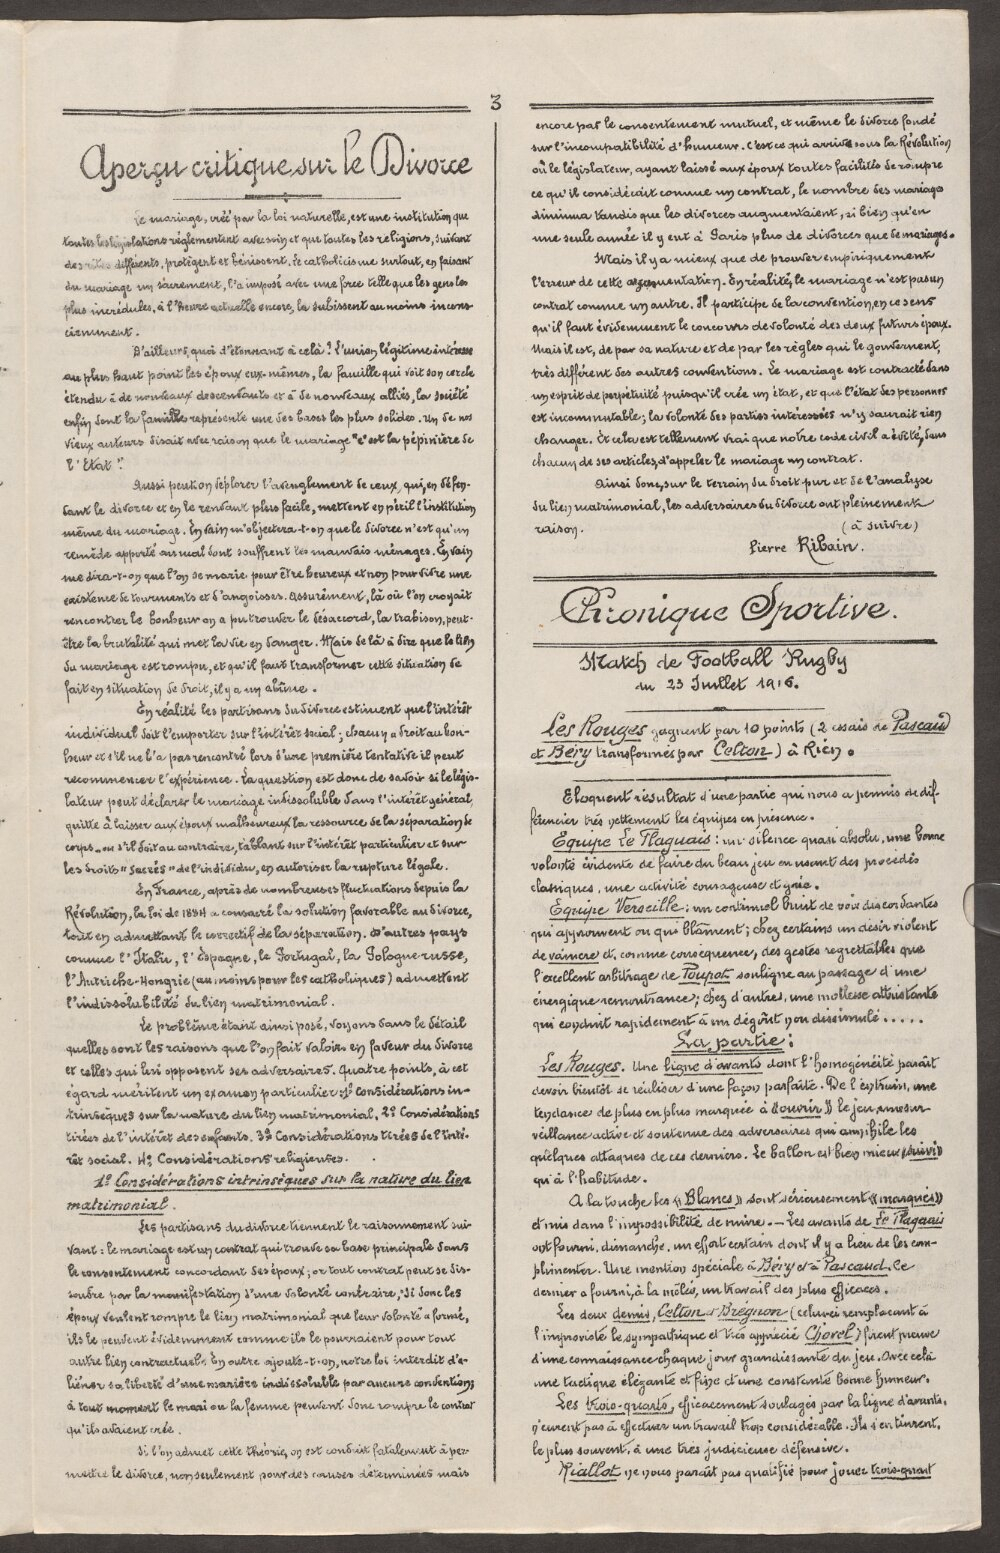 3
Aperçu critique sur le Divorce
Le mariage, créé par la loi naturelle, est une institution que
toutes les législations réglementent avec soin et que toutes les religions, suivant
des rites différents, protègent et bénissent. Le catholicisme surtout, en faisant
du mariage un sacrement, l'a imposé avec une force telle que les gens les
plus incrédules, à l'heure actuelle encore, la subissent au moins incons-
ciemment.
D'ailleurs, quoi d'étonnant à celà? L'union légitime intéresse
au plus haut point les époux eux-mêmes, la famille qui voit son cercle
étendu à de nouveaux descendants et à de nouveaux alliés, la société
enfin dont la famille représente une des bases les plus solides. Un de nos
vieux auteurs disait avec raison que le mariage "c'est la pépinière de
l'Etat".
Aussi peut-on déplorer l'aveuglement de ceux, qui, en défen-
dant le divorce et en le rendant plus facile, mettent en péril l'institution
même du mariage. En vain m'objectera-t-on que le divorce n'est qu'un
remède apporté au mal dont souffrent les mauvais ménages. En vain
me dira-t-on que l'on se marie pour être heureux et non pour vivre une
existence de tourments et d'angoisses. Assurément, là où l'on croyait
rencontrer le bonheur on a pu trouver le désaccord, la trahison, peut-
être la brutalité qui met la vie en danger. Mais de là à dire que le lien
du mariage est rompu, et qu'il faut transformer cette situation de
fait en situation de droit, il y a un abîme.
En réalité les partisans du divorce estiment que l'intérêt
individuel doit l'emporter sur l'intérêt social; chacun a droit au bon-
heur et s'il ne l'a pas rencontré lors d'une première tentative il peut
recommencer l'expérience. La question est donc de savoir si le légis-
lateur peut déclarer le mariage indissoluble dans l'intérêt général,
quitte à laisser aux époux malheureux la ressource de la séparation de
corps - ou s'il doit au contraire, tablant sur l'intérêt particulier et sur
les droits "sacrés" de l'individu, en autoriser la rupture légale.
En France, après de nombreuses fluctuations depuis la
Révolution, la loi de 1884 a consacré la solution favorable au divorce,
tout en admettant le correctif de la séparation. D'autres pays
comme l'Italie, l'Espagne, le Portugal, la Pologne russe,
l'Autriche-Hongrie (au moins pour les catholiques) admettent
l'indissolubilité du lien matrimonial.
Le problème étant ainsi posé, voyons dans le détail
quelles sont les raisons que l'on fait valoir en faveur du divorce
et celles qui lui opposent ses adversaires. Quatre points, à cet
égard méritent un examen particulier: 1º Considérations in-
trinsèques sur la nature du lien matrimonial, 2º Considérations
tirées de l'intérêt des enfants. 3º Considérations tirées de l'inté-
rêt social. 4º Considérations religieuses.
1º Considérations intrinsèques sur la nature du lien
matrimonial.
Les partisans du divorce tiennent le raisonnement sui-
vant: le mariage est un contrat qui trouve sa base principale dans
le consentement concordant des époux; or tout contrat peut se dis-
soudre par la manifestation d'une volonté contraire. Si donc les
époux veulent rompre le lien matrimonial que leur volonté a formé,
ils le peuvent évidemment comme ils le pourraient pour tout
autre lien contractuel. En outre ajoute-t-on, notre loi interdit d'a-
liéner sa liberté d'une manière indissoluble par aucune convention;
à tout moment le mari ou la femme peuvent donc rompre le contrat
qu'ils avaient créé.
Si l'on admet cette théorie, on est conduit fatalement à per-
mettre le divorce, non seulement pour des causes déterminées mais
encore par le consentement mutuel, et même le divorce fondé
sur l'incompatibilité d'humeur. C'est ce qui arriva sous la Révolution
où le législateur, ayant laissé aux époux toutes facilités de rompre
ce qu'il considérait comme un contrat, le nombre des mariages
diminua tandis que les divorces augmentaient, si bien qu'en
une seule année il y eut à Paris plus de divorces que de mariages.
Mais il y a mieux que de prouver empiriquement
l'erreur de cette argumentation. En réalité, le mariage n'est pas un
contrat comme un autre. Il participe de la convention, en ce sens
qu'il faut évidemment le concours de volonté des deux futurs époux.
Mais il est, de par sa nature et de par les règles qui le gouvernent,
très différent des autres conventions. Le mariage est contracté dans
un esprit de perpétuité puisqu'il crée un état, et que l'état des personnes
est incommutable; la volonté des parties intéressées n'y saurait rien
changer. Et cela est tellement vrai que notre code civil a évité, dans
chacun de ses articles, d'appeler le mariage un contrat.
Ainsi donc, sur le terrain du droit pur et de l'analyse
du lien matrimonial, les adversaires du divorce ont pleinement
raison. (à suivre)
Pierre Ribain.
Chronique Sportive.
Match de Football Rugby
du 23 Juillet 1916.
Les Rouges gagnent par 10 points (2 essais de Pascaud
et Béry transformés par Celton) à Rien.
Eloquent résultat d'une partie qui nous a permis de dif-
férencier très nettement les équipes en présence.
Equipe Le Flaguais: un silence quasi absolu, une bonne
volonté évidente de faire du beau jeu en usant des procédés
classiques, une activité courageuse et gaie.
Equipe Verseille: un continuel bruit de voix discordantes
qui approuvent ou qui blâment; chez certains un désir violent
de vaincre et, comme conséquence, des gestes regrettables que
l'excellent arbitrage de Poupot souligne au passage d'une
énergique remontrance; chez d'autres, une mollesse attristante
qui conduit rapidement à un dégoût non dissimulé.....
La partie:
Les Rouges. Une ligne d'avants dont l'homogénéité paraît
devoir bientôt se réaliser d'une façon parfaite. De l'entrain, une
tendance de plus en plus marquée à "ouvrir" le jeu, une sur-
veillance active et soutenue des adversaires qui annihile les
quelques attaques de ces derniers. Le ballon est bien mieux "suivi"
qu'à l'habitude.
A la touche les "Blancs" sont sérieusement "marqués"
et mis dans l'impossibilité de nuire. - Les avants de Le Flaguais
ont fourni, dimanche, un effort certain dont il y a lieu de les com-
plimenter. Une mention spéciale à Béry et à Pascaud. Ce
dernier a fourni, à la mêlée, un travail des plus efficaces.
Les deux demis, Celton et Brégnon (celui-ci remplaçant à
l'improviste le sympathique et très apprécié Chorel) firent preuve
d'une connaissance chaque jour grandissante du jeu. Avec celà
une tactique élégante et fine et une constante bonne humeur.
Les trois-quarts, efficacement soulagés par la ligne d'avants,
n'eurent pas à effectuer un travail trop considérable. Ils s'en tinrent,
le plus souvent, à une très judicieuse défensive.
Riallot ne nous paraît pas qualifié pour jouer trois-quart